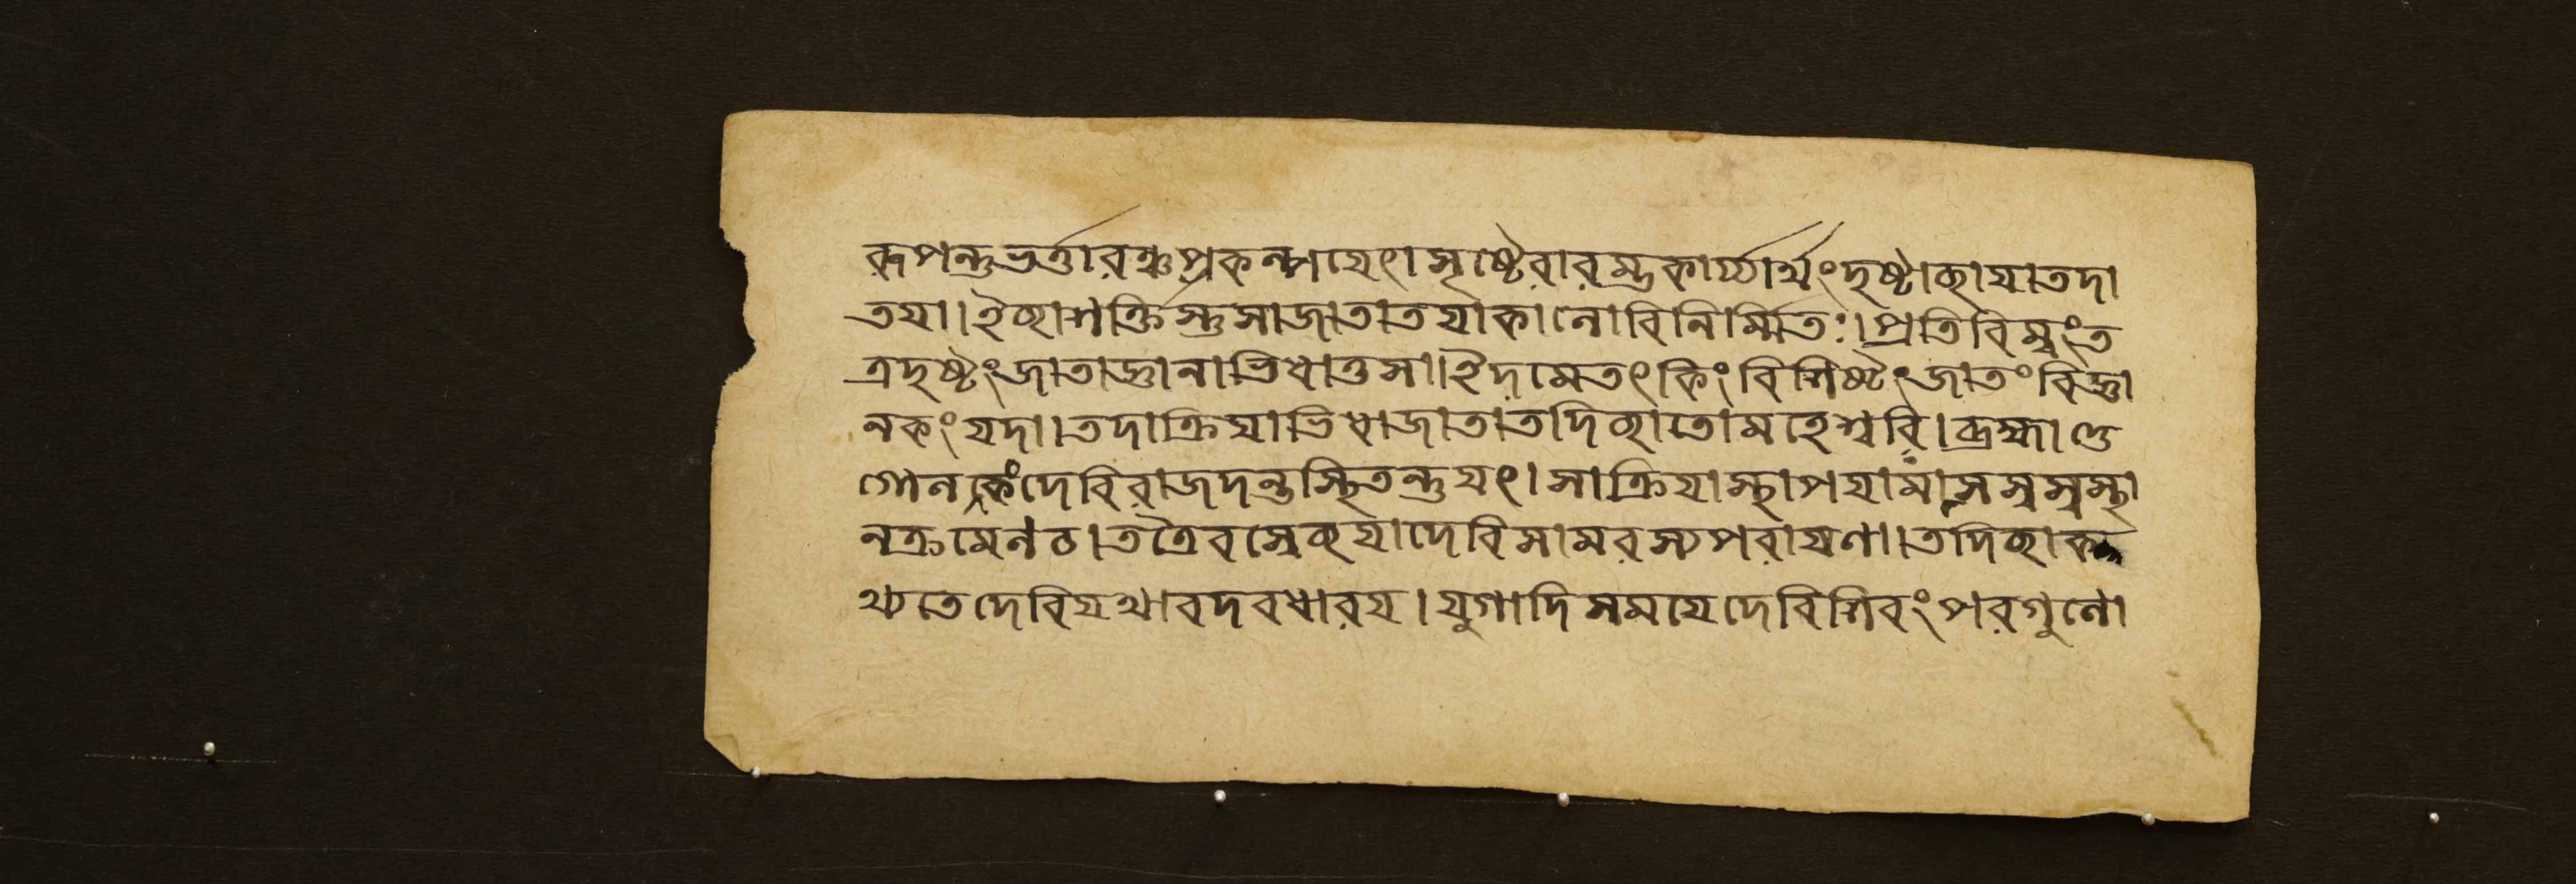 রূপন্তুভর্ত্তারঞ্চপ্রকল্পয়েৎ।সৃষ্টেরারম্ভকার্য্যার্থংদৃষ্টাছায়াতদা
তয়া।ইছাশক্তিস্তুসাজাতাতয়াকালোবিনির্ম্মিতঃ।প্রতিবিম্বংত
ত্রদৃষ্টংজাতাজ্ঞানাভিধাতুসা।ইদমেতৎকিংবিশিষ্টংজাতংবিজ্ঞা
নকংযদা।তদাক্রিয়াভিধাজাতাতদিছাতোমহেশ্বরি।ব্রহ্মাণ্ড
গোলকংদেবিরাজদন্তস্থিতন্তুযৎ।সাক্রিয়াস্থাপয়ামাসস্বস্বস্থা
নক্রমেনচ।তত্রৈবস্বেছয়াদেবিসামরস্যপরায়ণা।তদিছাক
থ্যতেদেবিযথাবদবধারয়।যুগাদিসময়েদেবিশিবংপরগুণো